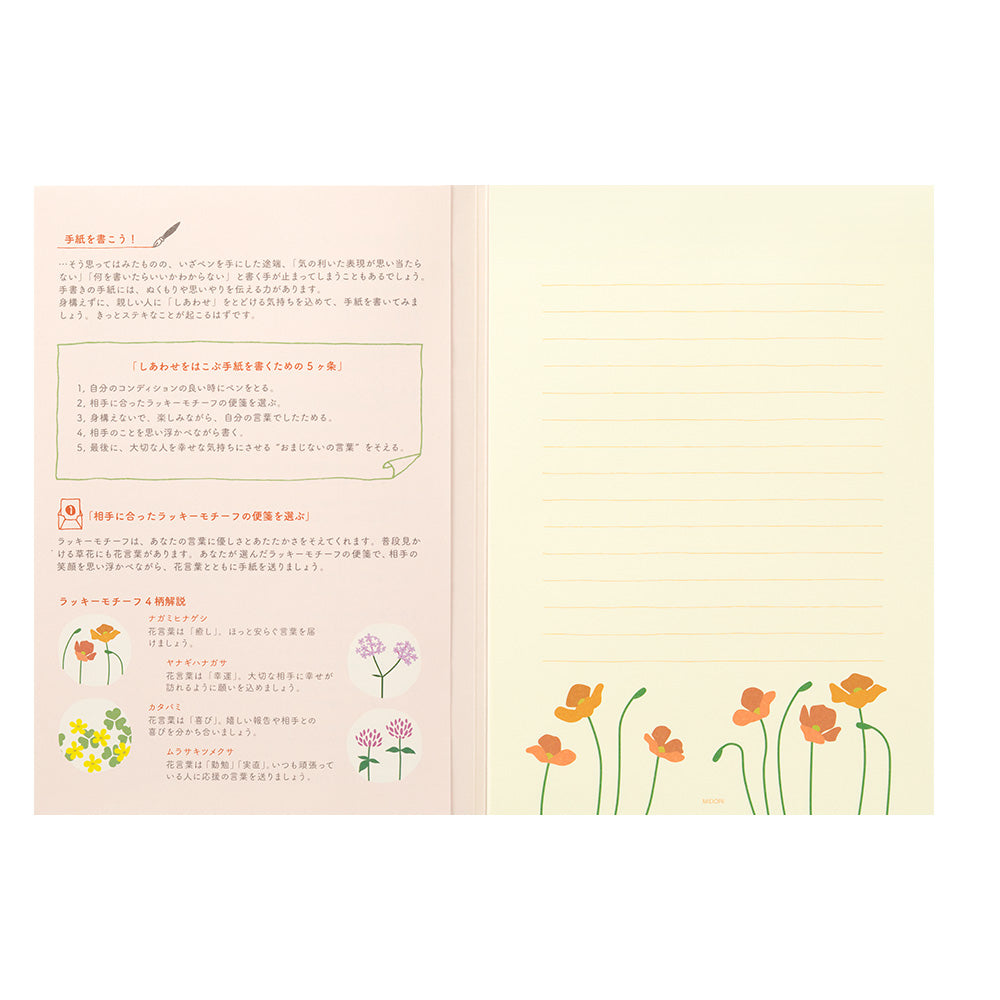 手紙を書こう！
…そう思ってはみたものの、いざペンを手にした途端、「気の利いた表現が思い当たら
ない」「何を書いたらいいかわからない」と書く手が止まってしまうこともあるでしょう。
手書きの手紙には、ぬくもりや思いやりを伝える力があります。
身構えずに、親しい人に「しあわせ」をとどける気持ちを込めて、手紙を書いてみま
しょう。きっとステキなことが起こるはずです。
「しあわせをはこぶ手紙を書くための5ヶ条」
1, 自分のコンディションの良い時にペンをとる。
2, 相手に合ったラッキーモチーフの便箋を選ぶ。
3, 身構えないで、楽しみながら、自分の言葉でしたためる。
4, 相手のことを思い浮かべながら書く。
5, 最後に、大切な人を幸せな気持ちにさせる“おまじないの言葉”をそえる。
1「相手に合ったラッキーモチーフの便箋を選ぶ」
ラッキーモチーフは、あなたの言葉に優しさとあたたかさをそえてくれます。普段見か
ける草花にも花言葉があります。あなたが選んだラッキーモチーフの便箋で、相手の
笑顔を思い浮かべながら、花言葉とともに手紙を送りましょう。
ラッキーモチーフ4柄解説
ナガミヒナゲシ
花言葉は「癒し」。ほっと安らぐ言葉を届
けましょう。
ヤナギハナガサ
花言葉は「幸運」。大切な相手に幸せが
訪れるように願いを込めましょう。
カタバミ
花言葉は「喜び」。嬉しい報告や相手との
喜びを分かち合いましょう。
ムラサキツメクサ
花言葉は「勤勉」「実直」。いつも頑張って
いる人に応援の言葉を送りましょう。
MIDORI